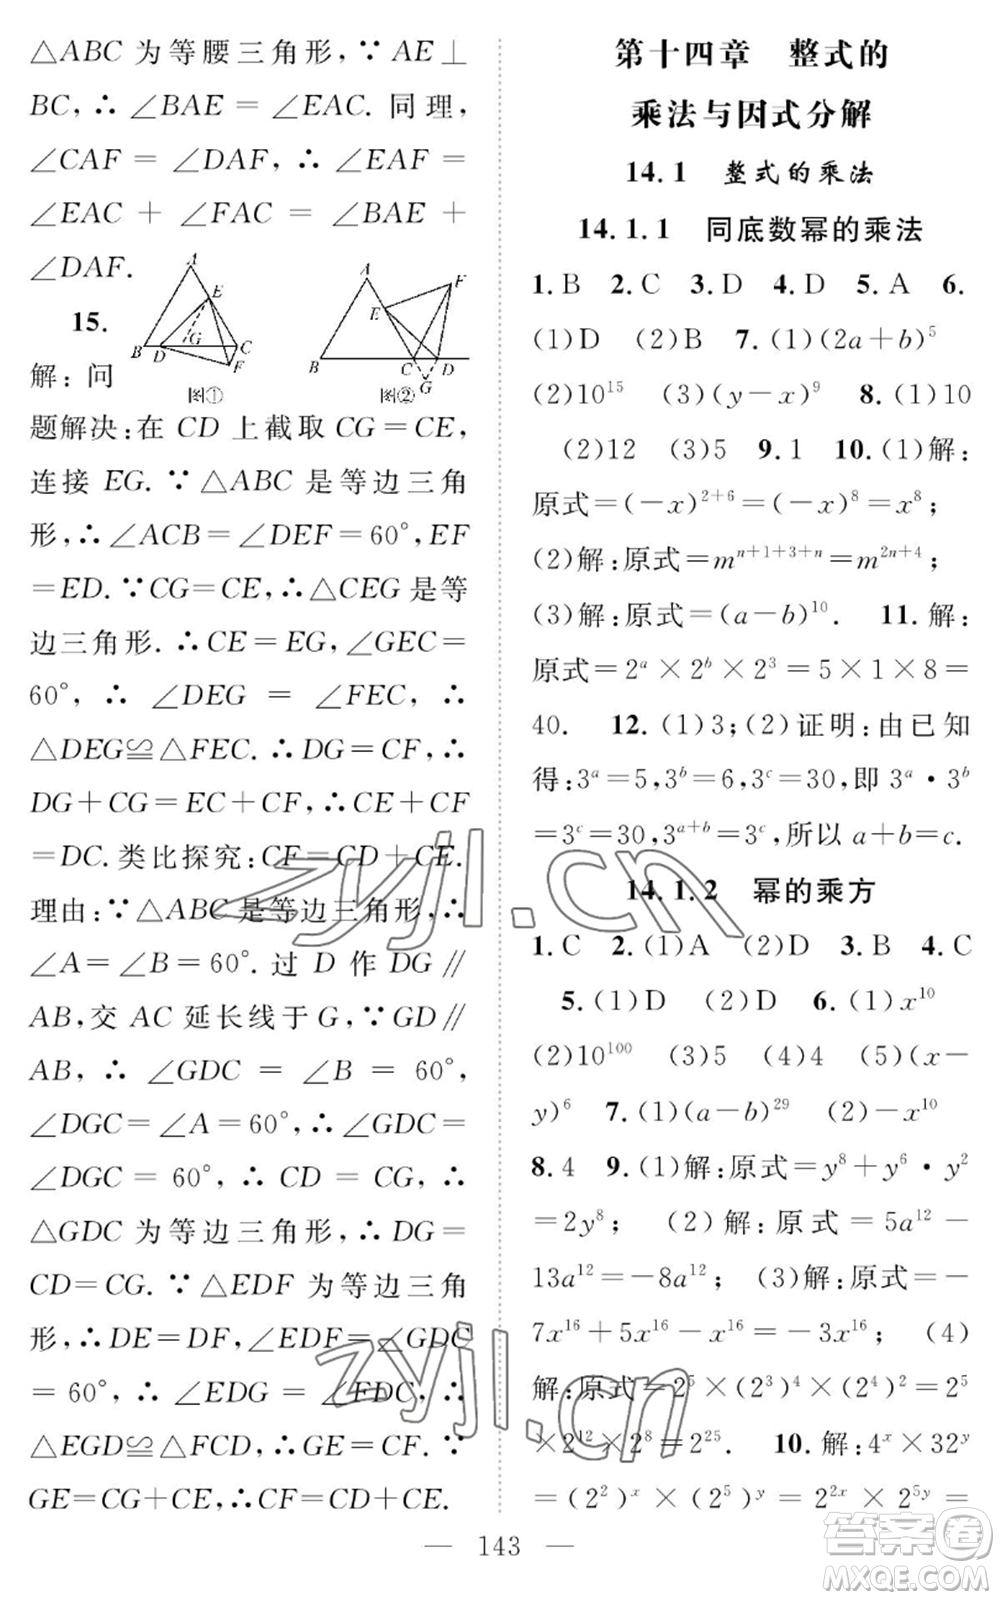 △ABC 为等腰三角形,∵AE⊥
BC,∴∠BAE=∠EAC. 同理,
∠CAF=∠DAF,∴∠EAF=
∠EAC+∠FAC=∠BAE+
∠DAF.
15.
解:问
A
E
B
D
G
C
F
图①
A
F
E
B
C
D
G
图②
题解决:在 CD 上截取 CG=CE,
连接 EG. ∵△ABC 是等边三角
形,∴∠ACB=∠DEF=60°,EF
=ED.∵CG=CE,∴△CEG 是等
边三角形.∴CE=EG,∠GEC=
60°,∴∠DEG=∠FEC,∴
△DEG≌△FEC.∴DG=CF,∴
DG+CG=EC+CF,∴CE+CF
=DC.类比探究:CF=CD+CE.
理由:∵△ABC是等边三角形,∴
∠A=∠B=60°.过 D 作 DG∥
AB,交 AC 延长线于 G,∵GD∥
AB,∴∠GDC=∠B=60°,
∠DGC=∠A=60°,∴∠GDC=
∠DGC=60°,∴CD=CG,∴
△GDC 为等边三角形,∴DG=
CD=CG.∵△EDF 为等边三角
形,∴DE=DF,∠EDF=∠GDC
=60°,∴∠EDG=∠FDC,∴
△EGD≌△FCD,∴GE=CF.∵
GE=CG+CE,∴CF=CD+CE.
第十四章 整式的
乘法与因式分解
14.1 整式的乘法
14.1.1 同底数幂的乘法
1.B 2.C 3.D 4.D 5.A 6.
(1)D (2)B 7.(1)(2a+b)⁵
(2)10¹⁵ (3)(y-x)⁹ 8.(1)10
(2)12 (3)5 9.1 10.(1)解:
原式=(-x)²⁺⁶=(-x)⁸=x⁸;
(2)解:原式=m^{n+1+3+n}=m^{2n+4};
(3)解:原式=(a-b)¹⁰. 11.解:
原式=2^a×2^b×2³=5×1×8=
40. 12.(1)3;(2)证明:由已知
得:3^a=5,3^b=6,3^c=30,即 3^a·3^b
=3^c=30,3^{a+b}=3^c,所以 a+b=c.
14.1.2 幂的乘方
1.C 2.(1)A (2)D 3.B 4.C
5.(1)D (2)D 6.(1)x¹⁰
(2)10¹⁰⁰ (3)5 (4)4 (5)(x-
y)⁶ 7.(1)(a-b)²⁹ (2)-x¹⁰
8.4 9.(1)解:原式=y⁸+y⁶·y²
=2y⁸; (2)解:原式=5a¹²-
13a¹²=-8a¹²; (3)解:原式=-
7x¹⁶+5x¹⁶-x¹⁶=-3x¹⁶; (4)
解:原式=2⁵×(2³)⁴×(2⁴)²=2⁵
×2¹²×2⁸=2²⁵. 10.解:4^x×32^y
=(2²)^x×(2⁵)^y=2^{2x}×2^{5y}=
— 143 —
zyjl.cn
zyjl.cn
答案卷
MXQE.COM